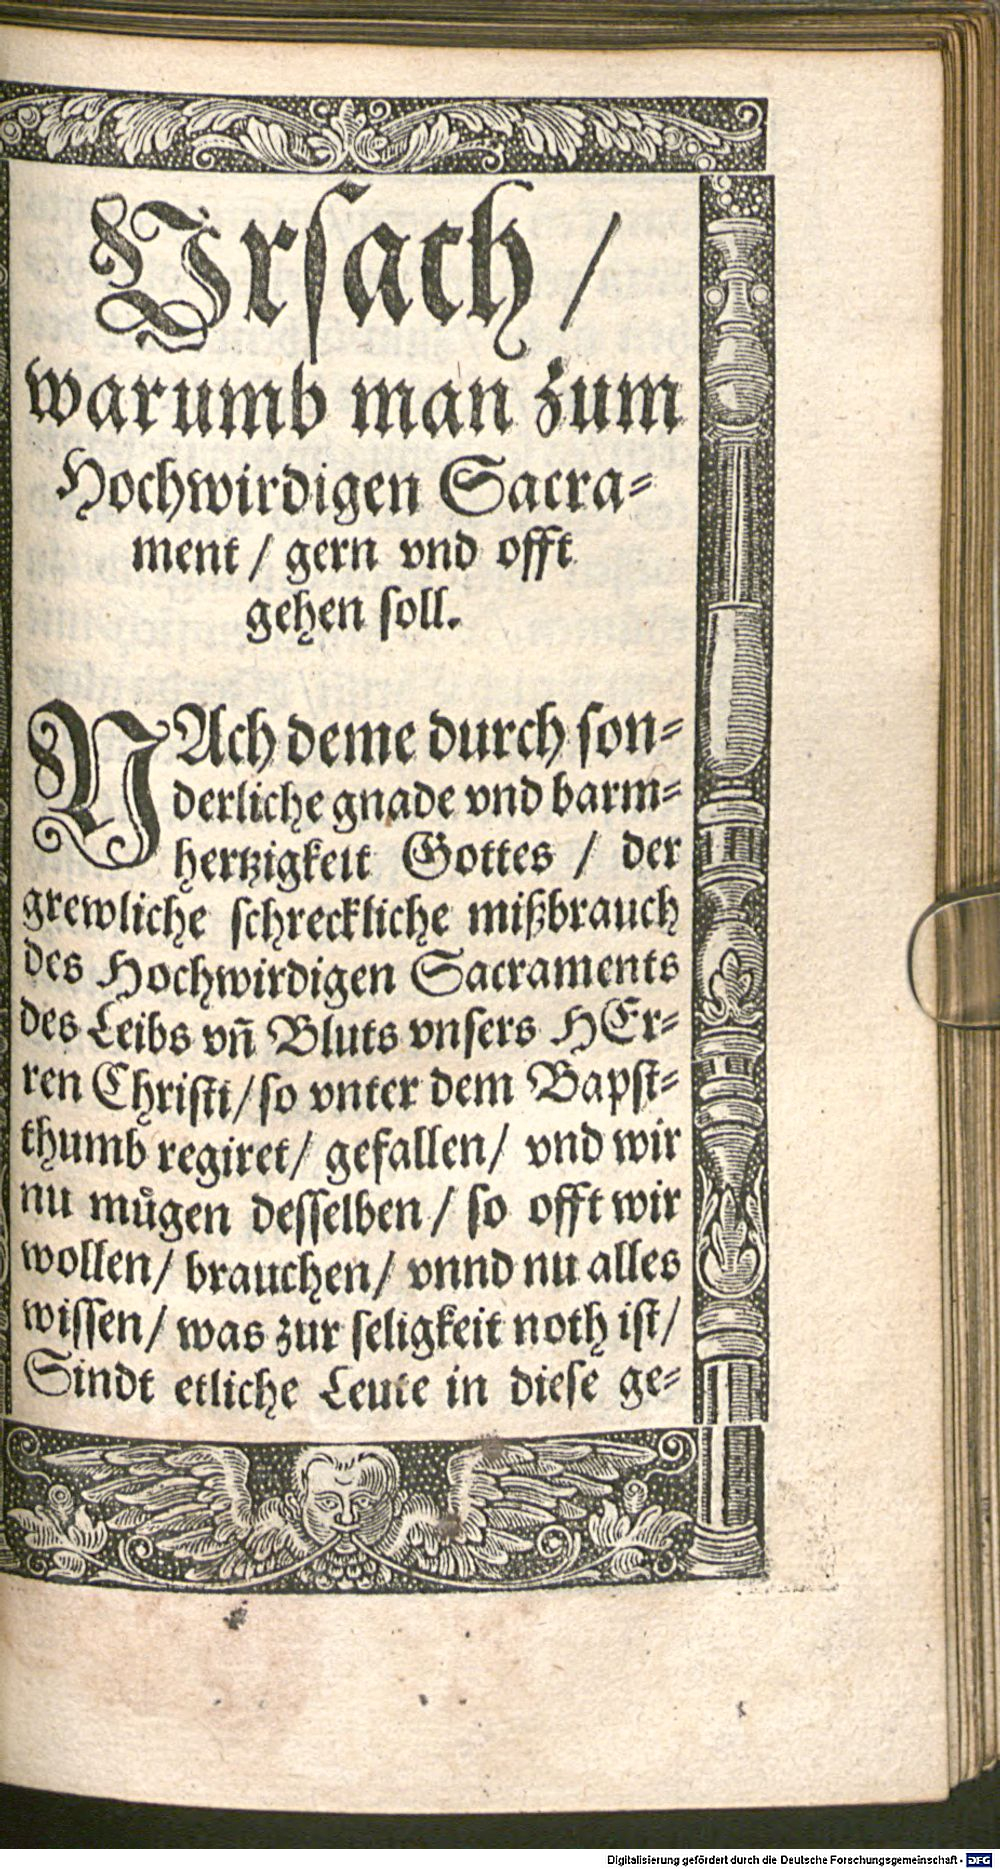 Vrsach /
warumb man zum
Hochwirdigen Sacra⸗
ment / gern vnd offt
gehen soll.
NAch deme durch son⸗
derliche gnade vnd barm⸗
hertzigkeit Gottes / der
grewliche schreckliche mißbrauch
des Hochwirdigen Sacraments
des Leibs vñ Bluts vnsers HEr⸗
ren Christi / so vnter dem Bapst⸗
thumb regiret / gefallen / vnd wir
nu muͤgen desselben / so offt wir
wollen / brauchen / vnnd nu alles
wissen / was zur seligkeit noth ist /
Sindt etliche Leute in diese ge⸗
Digitalisierung gefördert durch die Deutsche Forschungsgemeinschaft - DFG